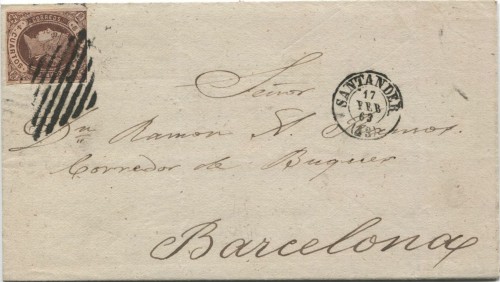 CORREOS
4 CUARTOS
Señor
SANTANDER
17
FEB
Dn Ramon A. Ramos
Corredor de Buques
Barcelona